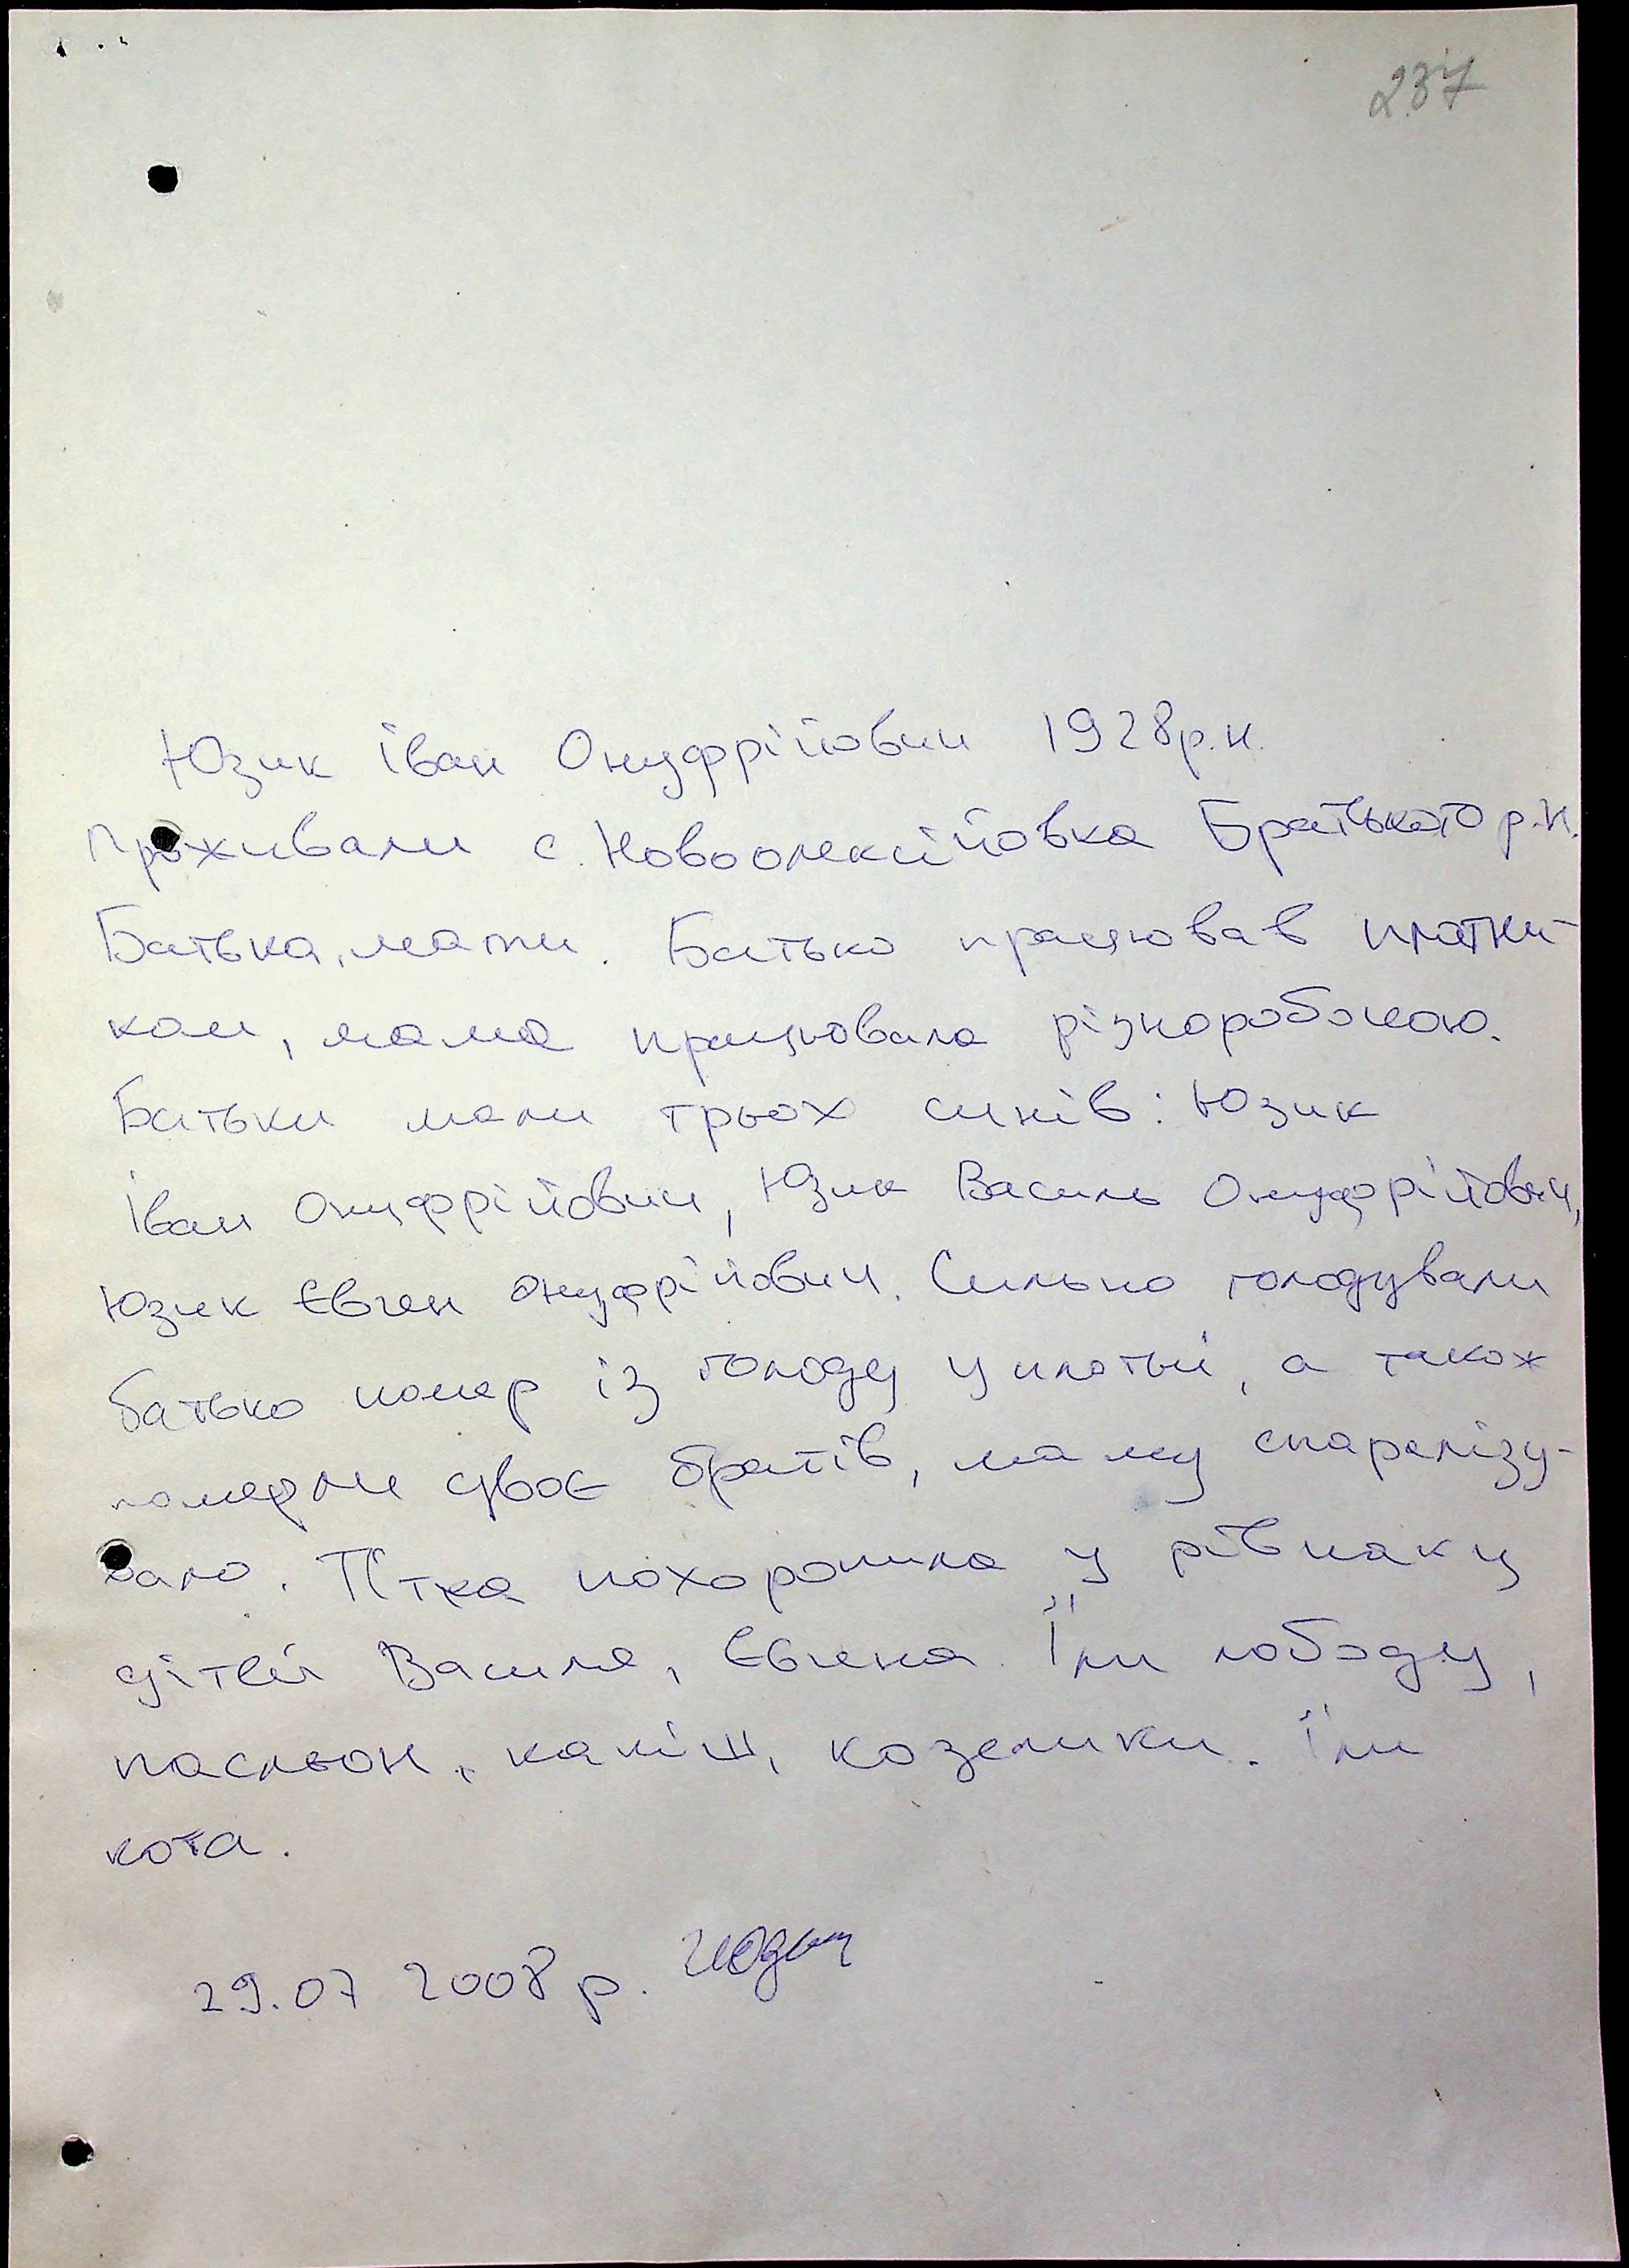 237
Юзик Іван Онуфрійович 1928р.н.
Проживали с. Новоолексійовка Братського р.н.
Батька, мати. Батько працював плотни-
ком, мама працювала різноробочою.
Батьки мали трьох синів: Юзик
Іван Онуфрійович, Юзик Василь Онуфрійович,
Юзик Євген Онуфрійович. Сильно голодували
батько помер із голоду у плотні, а також
померли двоє братів, маму спаралізу-
вало. Тітка похоронила у рівчаку
дітей Василя, Євгена. Їли лободу,
пасльон, каліш, козелики. Їли
кота.
29.07 2008 р.